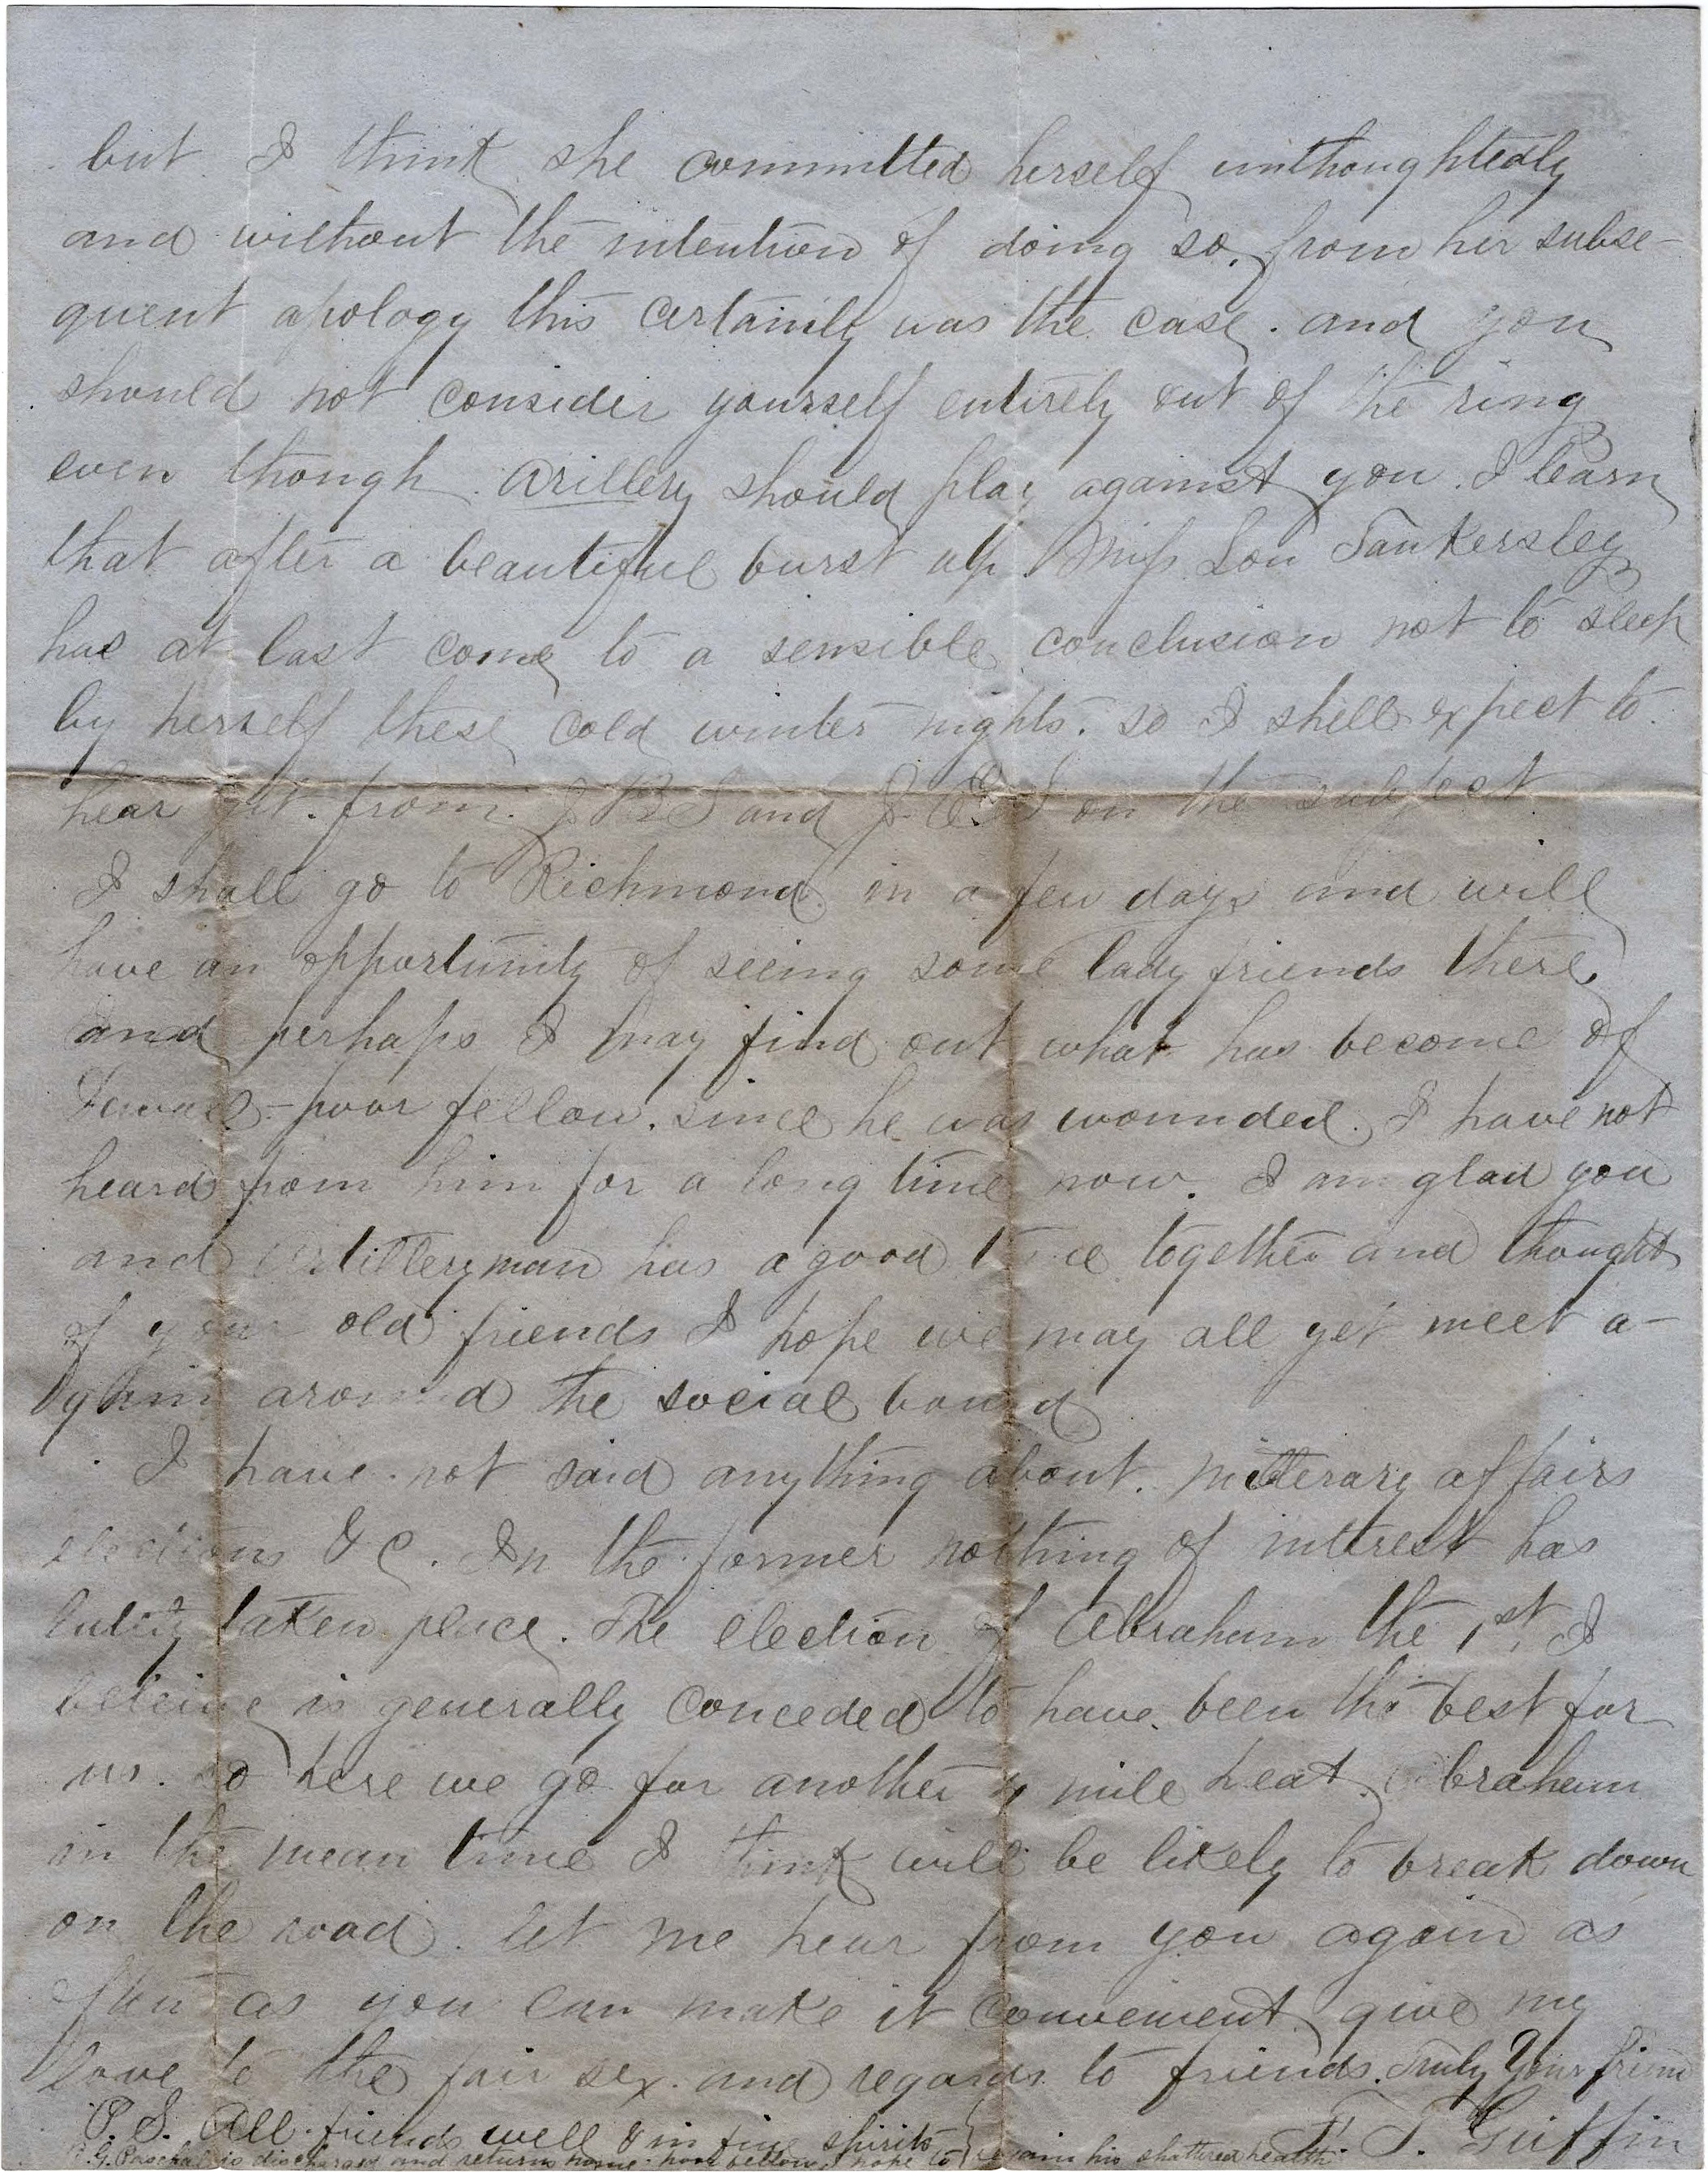 but I think she committed herself unthoughtedly
and without the intention of doing so, from her subse-
quent apology this certainly was the case. and you
should not consider yourself entirely out of the ring
even though Arillery should play against you. I learn
that after a beautiful burst up Miss Lou Tankersley
has at last come to a sensible conclusion not to sleep
by herself these cold winter nights. so I shall expect to
hear from and on the subject
I shall go to Richmond in a few days and will
have an opportunity of seeing some lady friends there,
and perhaps I may find out what has become of
- poor fellow. since he was wounded. I have not
heard from him for a long time now. I am glad you
and Artilleryman has a good time together and thought
of your old friends I hope we may all yet meet a-
gain around the social board
I have not said anything about militerary affairs
elections &C. In the former nothing of interest has
lately taken place. The election of Abraham the 1st, I
beleive is generally conceded to have been the best for
us. so here we go for another 4 mile heat. Abraham
in the mean time I think will be likely to break down
on the road. let me hear from you again as
often as you can make it convenient. give my
love to the fair sex. and regards to friends. Truly Your friend
T. Griffin
P.S. All friends well & in fine spirits
P.G. Paschal is discharged and returns home. poor fellow I hope to regain his shattered health.